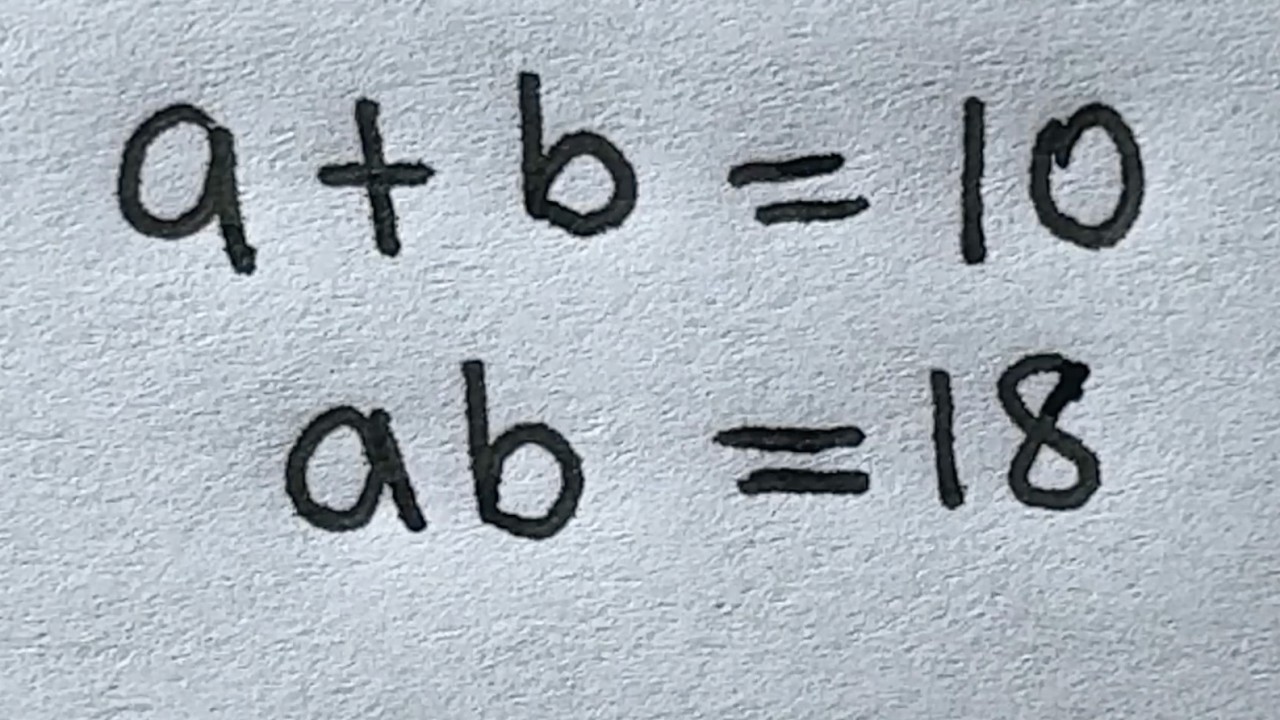 a + b = 10
ab = 18